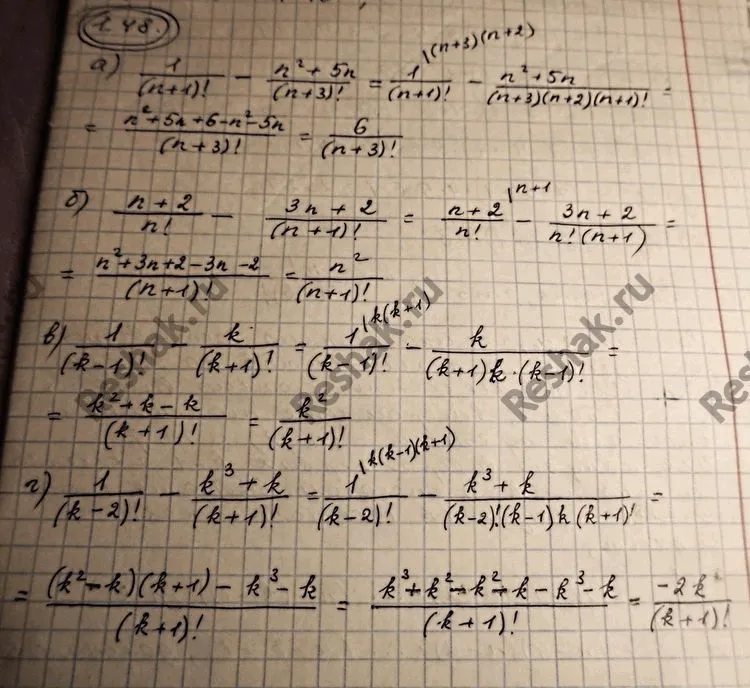 1.48.
а) 1/(n+1)! - (n²+5n)/(n+3)! = 1^{\(n+3)(n+2)}/(n+1)! - (n²+5n)/((n+3)(n+2)(n+1)!) =
= (n²+5n+6-n²-5n)/(n+3)! = 6/(n+3)!
б) (n+2)/n! - (3n+2)/(n+1)! = (n+2)^{\n+1}/n! - (3n+2)/(n!(n+1)) =
= (n²+3n+2-3n-2)/(n+1)! = n²/(n+1)!
в) 1/(k-1)! - k/(k+1)! = 1^{\k(k+1)}/(k-1)! - k/((k+1)k·(k-1)!) =
= (k²+k-k)/(k+1)! = k²/(k+1)!
г) 1/(k-2)! - (k³+k)/(k+1)! = 1^{\k(k-1)(k+1)}/(k-2)! - (k³+k)/((k-2)!(k-1)k(k+1)!) =
= ((k²-k)(k+1)-k³-k)/(k+1)! = (k³+k²-k²-k-k³-k)/(k+1)! = -2k/(k+1)!
Reshak.ru
Reshak.ru
Reshak.ru